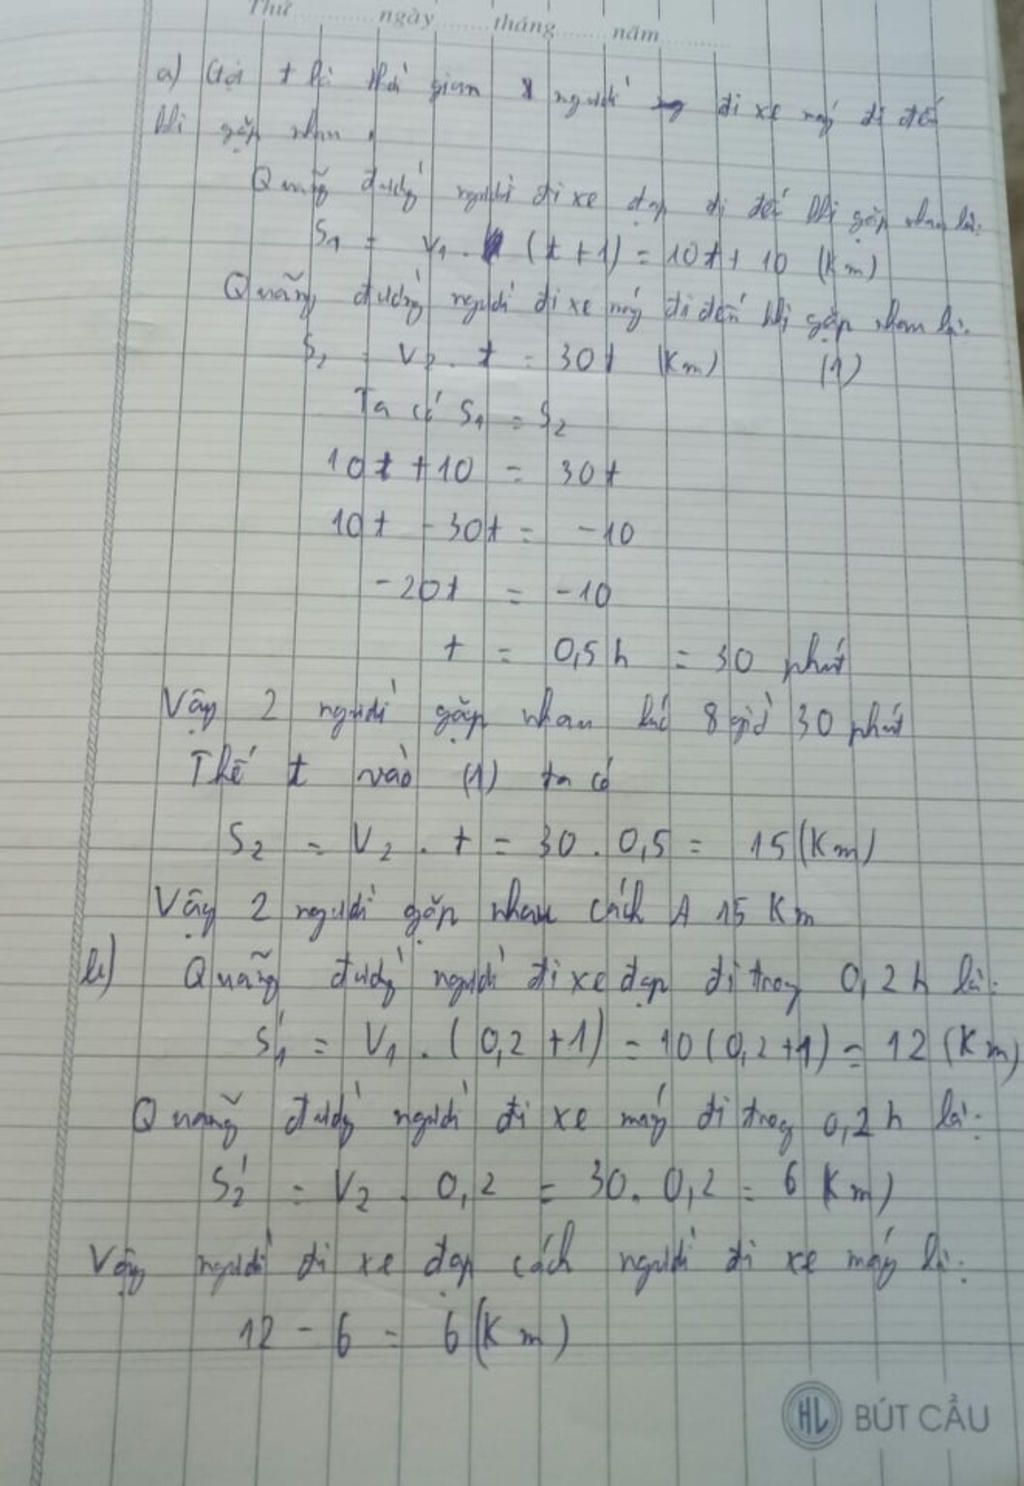 Thứ ngày tháng năm
a) Gọi t là thời gian người đi xe máy đi đến
khi gặp nhau.
Quãng đường người đi xe đạp đi đến khi gặp nhau là:
S1 = V1 . (t + 1) = 10t + 10 (Km)
Quãng đường người đi xe máy đi đến khi gặp nhau là:
S2 = V2 . t = 30t (Km) (1)
Ta có S1 = S2
10t + 10 = 30t
10t - 30t = -10
-20t = -10
t = 0,5h = 30 phút
Vậy 2 người gặp nhau lúc 8 giờ 30 phút
Thế t vào (1) ta có
S2 = V2 . t = 30 . 0,5 = 15 (Km)
Vậy 2 người gặp nhau cách A 15 Km
b) Quãng đường người đi xe đạp đi trong 0,2h là:
S'1 = V1 . (0,2 + 1) = 10 (0,2 + 1) = 12 (Km)
Quãng đường người đi xe máy đi trong 0,2h là:
S'2 = V2 . 0,2 = 30 . 0,2 = 6 (Km)
Vậy người đi xe đạp cách người đi xe máy là:
12 - 6 = 6 (Km)
HL BÚT CẦU